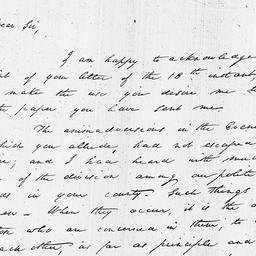 ear Sir,
I am happy to acknowledge
of your letter of the 18th instant,
make the use you desire me
the paper you have sent me.
The animadversions in the
which you allude, had not escaped
; and I had heard with much
of the division among our polit
ds in your county. Such things
When they occur, it is the
who are concerned in them, to
each other, as far as principle and